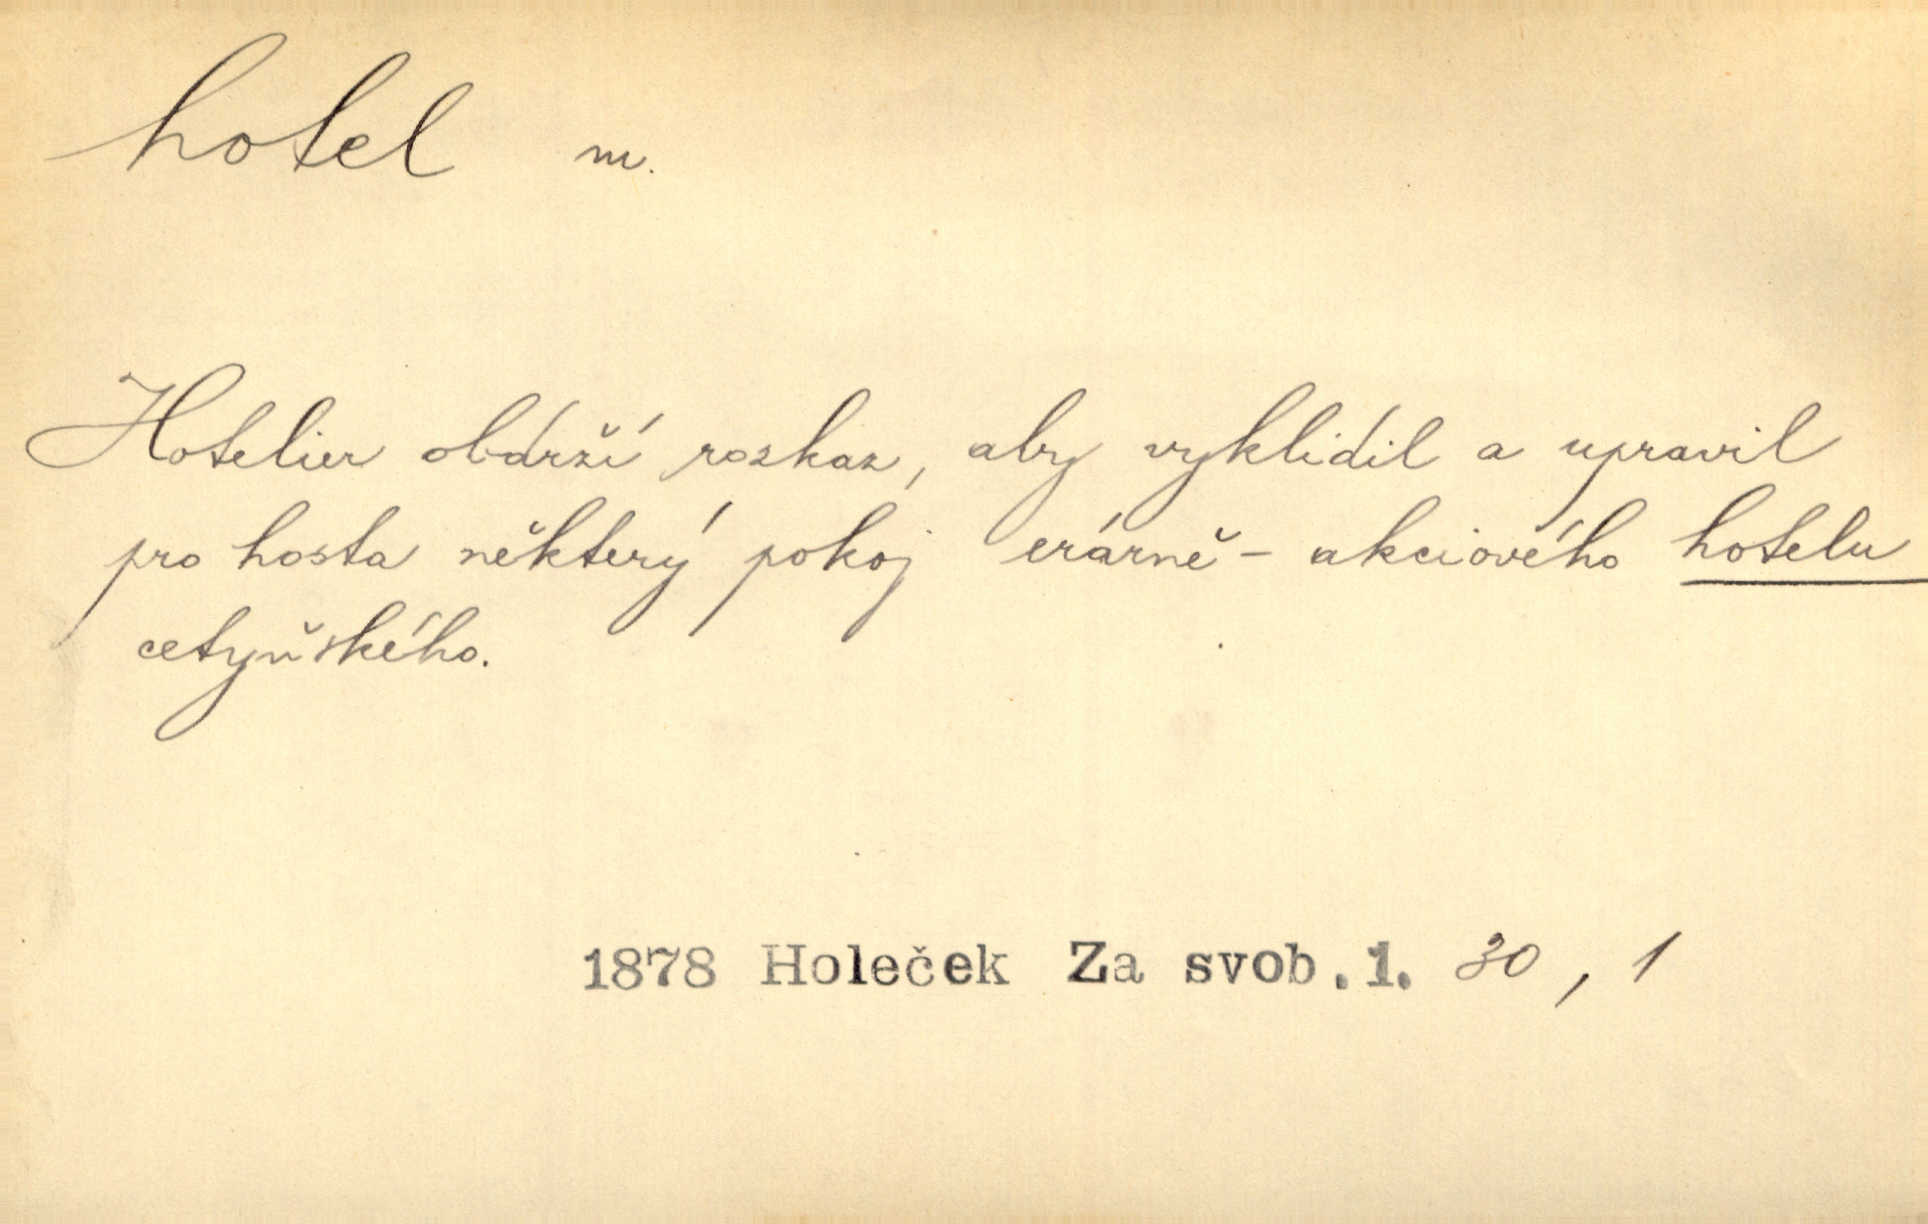 hotel m.
Hotelier obdrží rozkaz, aby vyklidil a upravil
pro hosta některý pokoj erárně - akciového hotelu
cetyňského.
1878 Holeček Za svob.1. 30, 1